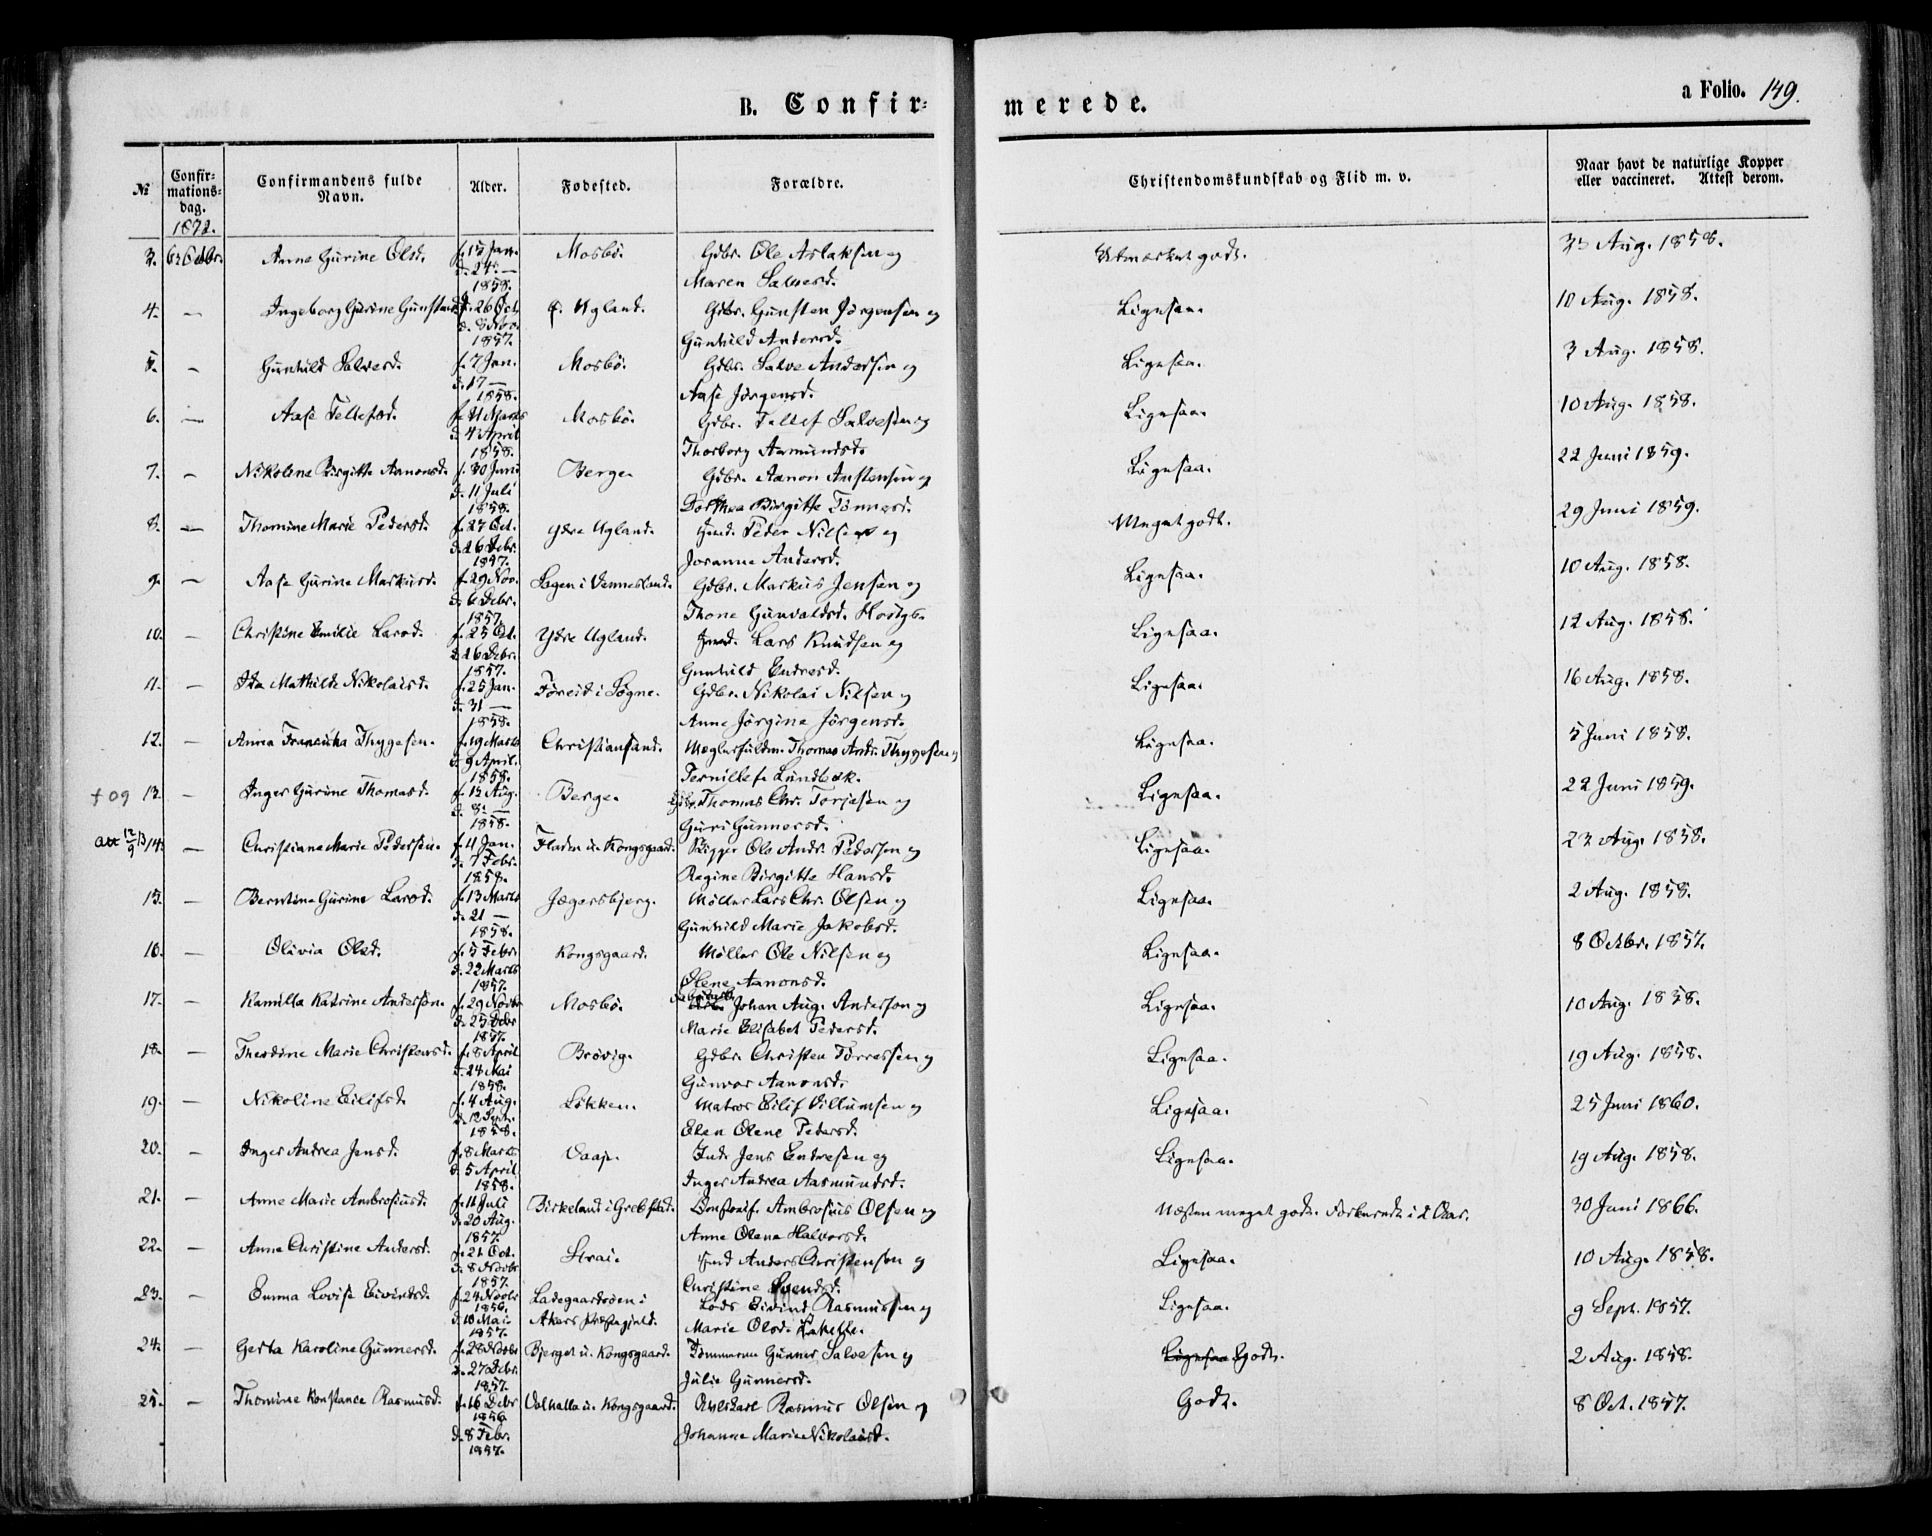 B. Confir-
merede.
a Folio. 149.
№
Confir-
mations-
dag.
1872.
Confirmandens fulde
Navn.
Alder.
Fødested.
Forældre.
Christendomskundskab og Flid m. v.
Naar havt de naturlige Kopper
eller vaccineret. Attest derom.
3. 6te Octbr. Anne Gurine Olsd. f. 15 Jan. Mosbö. Gdbr. Ole Aslaksen og Utmærket godt. Aug. 1858.
d. 24 — Maren Salvesd.
1858.
4. — Ingeborg Gurine Gunstensd. f. 26 Oct. Ugland. Gdbr. Gunsten Jörgensen og Ligesaa. 10 Aug. 1858.
d. 8 Nov. Gunhild Andersd.
1857.
5. — Gunhild Salvesd. f. 7 Jan. Mosbö. Gdbr. Salve Andersen og Ligesaa. 3 Aug. 1858.
d. 17 — Aase Jörgensd.
1858.
6. — Aase Tellefsd. f. 21 Marts Mosbö. Gdbr. Tellef Salvesen og Ligesaa. 10 Aug. 1858.
d. 4 April Thorborg Aamundsd.
1858.
7. — Nikolene Birgitte Aanonsd. f. 30 Juni Berge. Gdbr. Aanon Anstensen og Ligesaa. 22 Juni 1859.
d. 11 Juli Dorthea Birgitte Tönnesd.
1858.
8. — Thomine Marie Pedersd. f. 27 Oct. Ydre Ugland. Peder Nilsen og Meget godt. 29 Juni 1859.
d. 26 Debr. Josanne Andersd.
1857.
9. — Aase Gurine Markusd. f. 29 Nov. i Vennesland. Gdbr. Markus Jensen og Ligesaa. 10 Aug. 1858.
d. 6 Debr. Thone Gunvaldsd.
1857.
10. — Christine Emilie Larsd. f. 25 Oct. Ydre Ugland. Lars Knudsen og Ligesaa. 12 Aug. 1858.
26 Debr. Gunhild Endresd.
1857.
11. — Ida Mathilde Nikolaisd. f. 25 Jan. i Søgne. Gdbr. Nikolai Nilsen og Ligesaa. 16 Aug. 1858.
d. 31 — Anne Jörgine Jörgensd.
1858.
12. — Anna Franciska Thygesen. f. 19 Marts Christiansand. Thomas Andr. Thygesen og Ligesaa. 5 Juni 1858.
d. 9 April. Pernille f. Lundbæk.
1858.
† 09 13. — Inger Gurine Thomasd. f. 12 Aug. Berge. Gdbr. Thomas Chr. Torjesen og Ligesaa. 22 Juni 1859.
d. 8. — Guri Gunnersd.
1858.
att 12/9 13 14. — Christiane Marie Pedersen. f. 11 Jan. Fladen u. Kongsgaard. Rigger Ole Andr. Pedersen og Ligesaa. 23 Aug. 1858.
d. 7 Febr. Regine Birgitte Hansd.
1858.
15. — Berntine Gurine Larsd. f. 13 Marts Jægersbjerg. Möller Lars Chr. Olsen og Ligesaa. 2 Aug. 1858.
d. 21 — Gunhild Marie Jakobsd.
1858.
16. — Olivia Olsd. f. 5 Febr. Kongsgaard. Möller Ole Nilsen og Ligesaa. 8 Octbr. 1857.
d. 22 Marts Olene Aanonsd.
1857.
17. — Kamilla Katrine Anderson. f. 29 Novbr Mosbö. Johan Aug. Anderson og Ligesaa. 10 Aug. 1858.
d. 25 Debr Marie Elisabet Pedersd.
1857.
18. — Theodine Marie Christensd. f. 8 April Brövig. Gdbr. Christen Torressen og Ligesaa. 19 Aug. 1858.
d. 24 Mai Gunvor Aanonsd.
1858.
19. — Nikoline Eilifsd. f. 4 Aug. Lökken. Matros Eilif Villumsen og Ligesaa. 25 Juni 1860.
d. 12 Sept. Elen Olene Pedersd.
1858.
20. — Inger Andrea Jensd. f. 8 Marts Jens Endresen og Ligesaa. 19 Aug. 1858.
d. 5 April Inger Andrea Aasmundsd.
1858.
21. — Anne Marie Ambrosiusd. f. 11 Juli Birkeland i Grebstad. Ambrosius Olsen og Næsten meget godt. Forberedt i 2 Aar. 30 Juni 1866.
d. 20 Aug. Anne Olene Halvorsd.
1857.
22. — Anne Christine Andersd. f. 21 Oct. Strai. Anders Christensen og Ligesaa. 10 Aug. 1858.
d. 8 Novbr Christine Svendsd.
1857.
23. — Emma Lovise Eivindsd. f. 24 Novbr Ladegaardsöen i Lods Eivind Rasmussen og Ligesaa. 9 Sept. 1857.
1856. Akers Præstegjeld. Marie Olsd.
d. 10 Mai
1857.
24. — Gerta Karoline Gunnersd. f. 28 Novbr Bjerget u. Kongsgaard. Tömmermand Gunner Salvesen og Ligesaa Godt. 2 Aug. 1858.
d. 27 Debr. Julie Gunnersd.
1857.
25. — Thomine Konstance Rasmusd. f. 16 Debr Valhalla u. Kongsgaard. Rasmus Olsen og Godt. 8 Oct. 1857.
1856 Johanne Marie Nikolaisd.
d. 8 Febr.
1857.